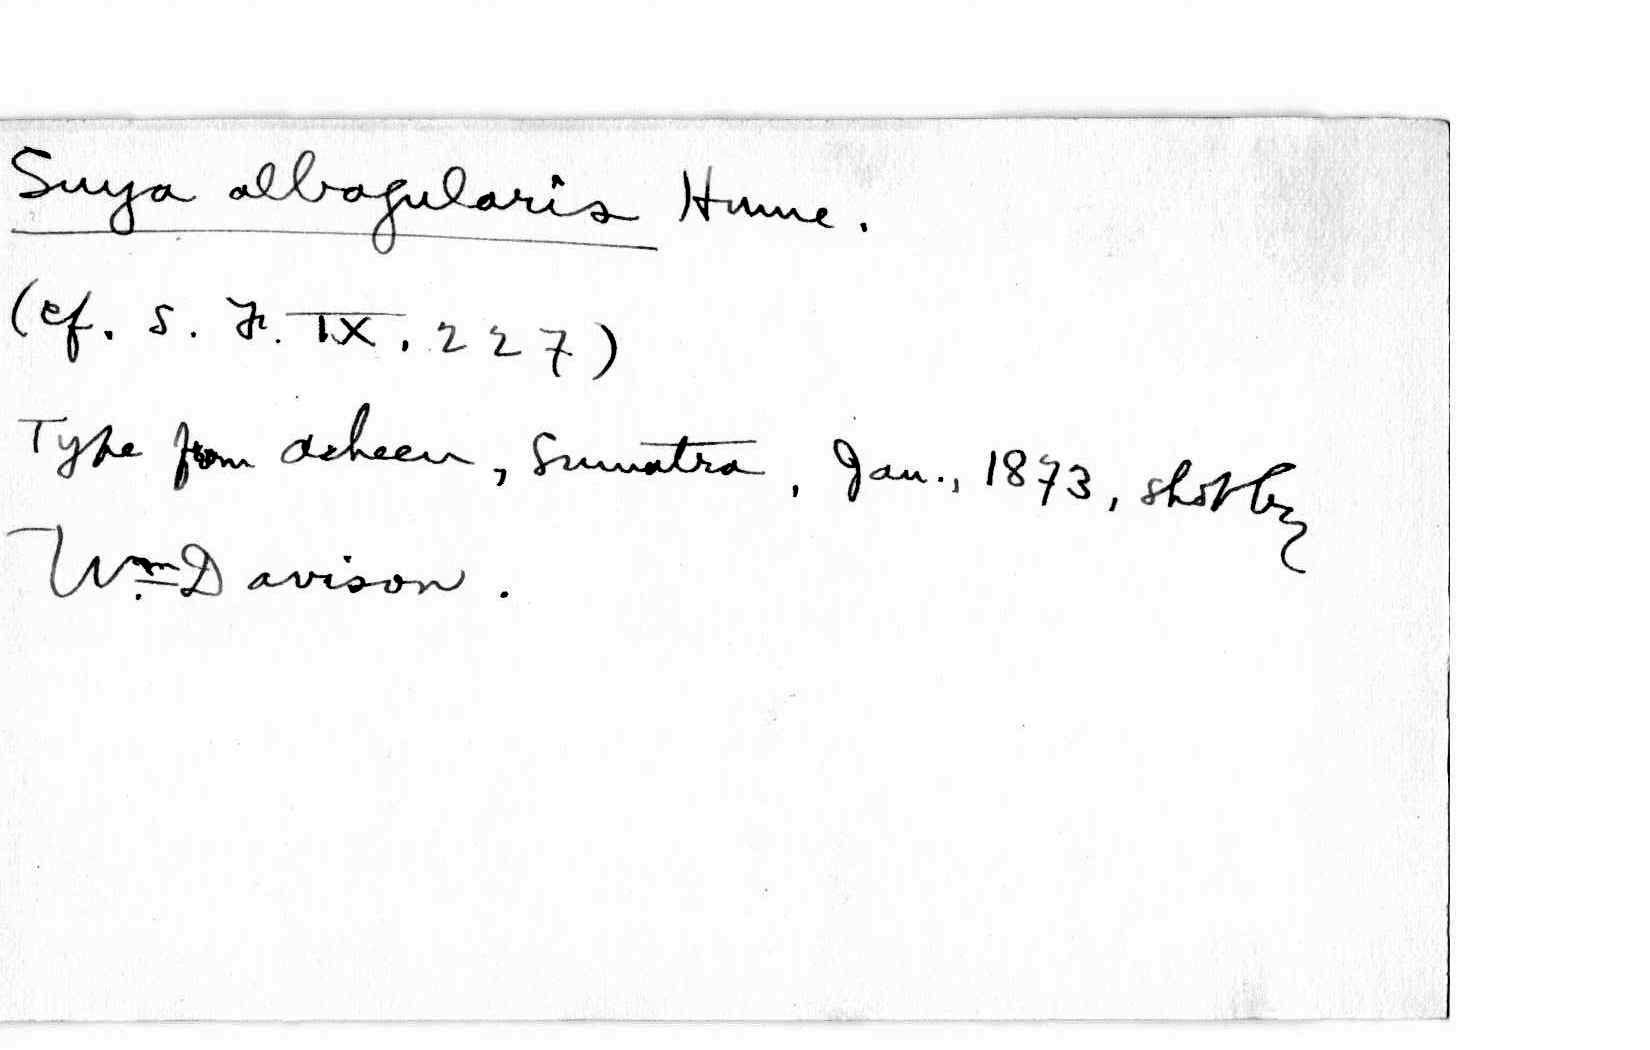 Suya albogularis Hume.
(cf. S. F. IX. 227)
Type from Acheen, Sumatra, Jan., 1873, shot by
Wm. Davison.